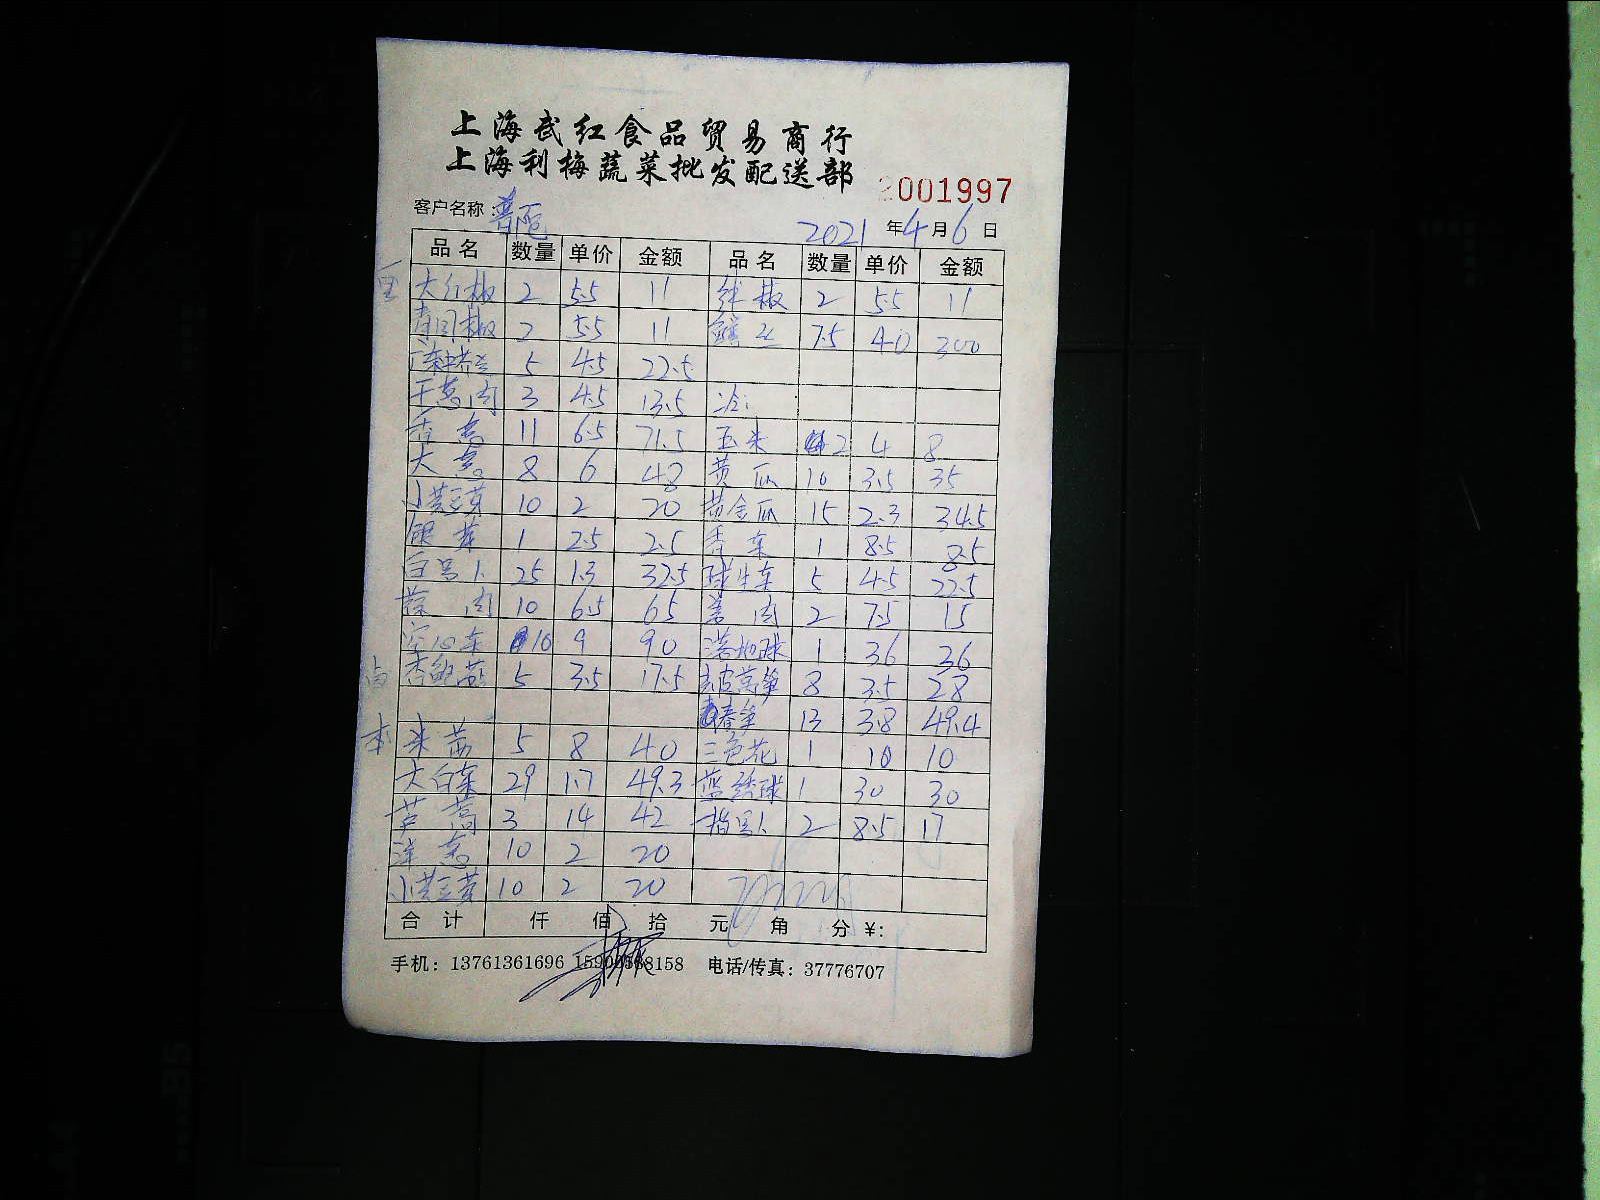 上海武红食品贸易商行
上海利梅蔬菜批发配送部
2001997
客户名称：普陀
2021年4月6日
品名 数量 单价 金额 品名 数量 单价 金额
大红椒 2 5.5 11 线椒 2 5.5 11
青圆椒 2 5.5 11 鳝丝 7.5 40 300
5 4.5 22.5
干葱肉 3 4.5 13.5 冷:
香葱 11 6.5 71.5 玉米 2 4 8
大葱 8 6 48 黄瓜 10 3.5 35
小黄豆芽 10 2 20 黄金瓜 15 2.3 34.5
银芽 1 2.5 2.5 香菜 1 8.5 8.5
白萝卜 25 1.3 32.5 球生菜 5 4.5 22.5
蒜肉 10 6.5 65 姜肉 2 7.5 15
空心菜 10 9 90 1 36 36
杏鲍菇 5 3.5 17.5 去皮莴笋 8 3.5 28
春笋 13 3.8 49.4
本 米苋 5 8 40 三色花 1 10 10
大白菜 29 1.7 49.3 蓝绣球 1 30 30
芦蒿 3 14 42 2 8.5 17
洋葱 10 2 20
小黄豆芽 10 2 20
合计 仟 佰 拾 元 角 分 ¥:
手机：13761361696 158158 电话/传真：37776707